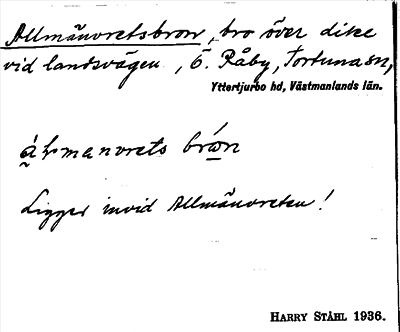 Allmänvretsbron, bro över dike
vid landsvägen, Ö. Råby, Tortuna sn,
Yttertjurbo hd, Västmanlands län.
manvrets brón
Ligger invid Allmänvreten!
HARRY STÅHL 1936.